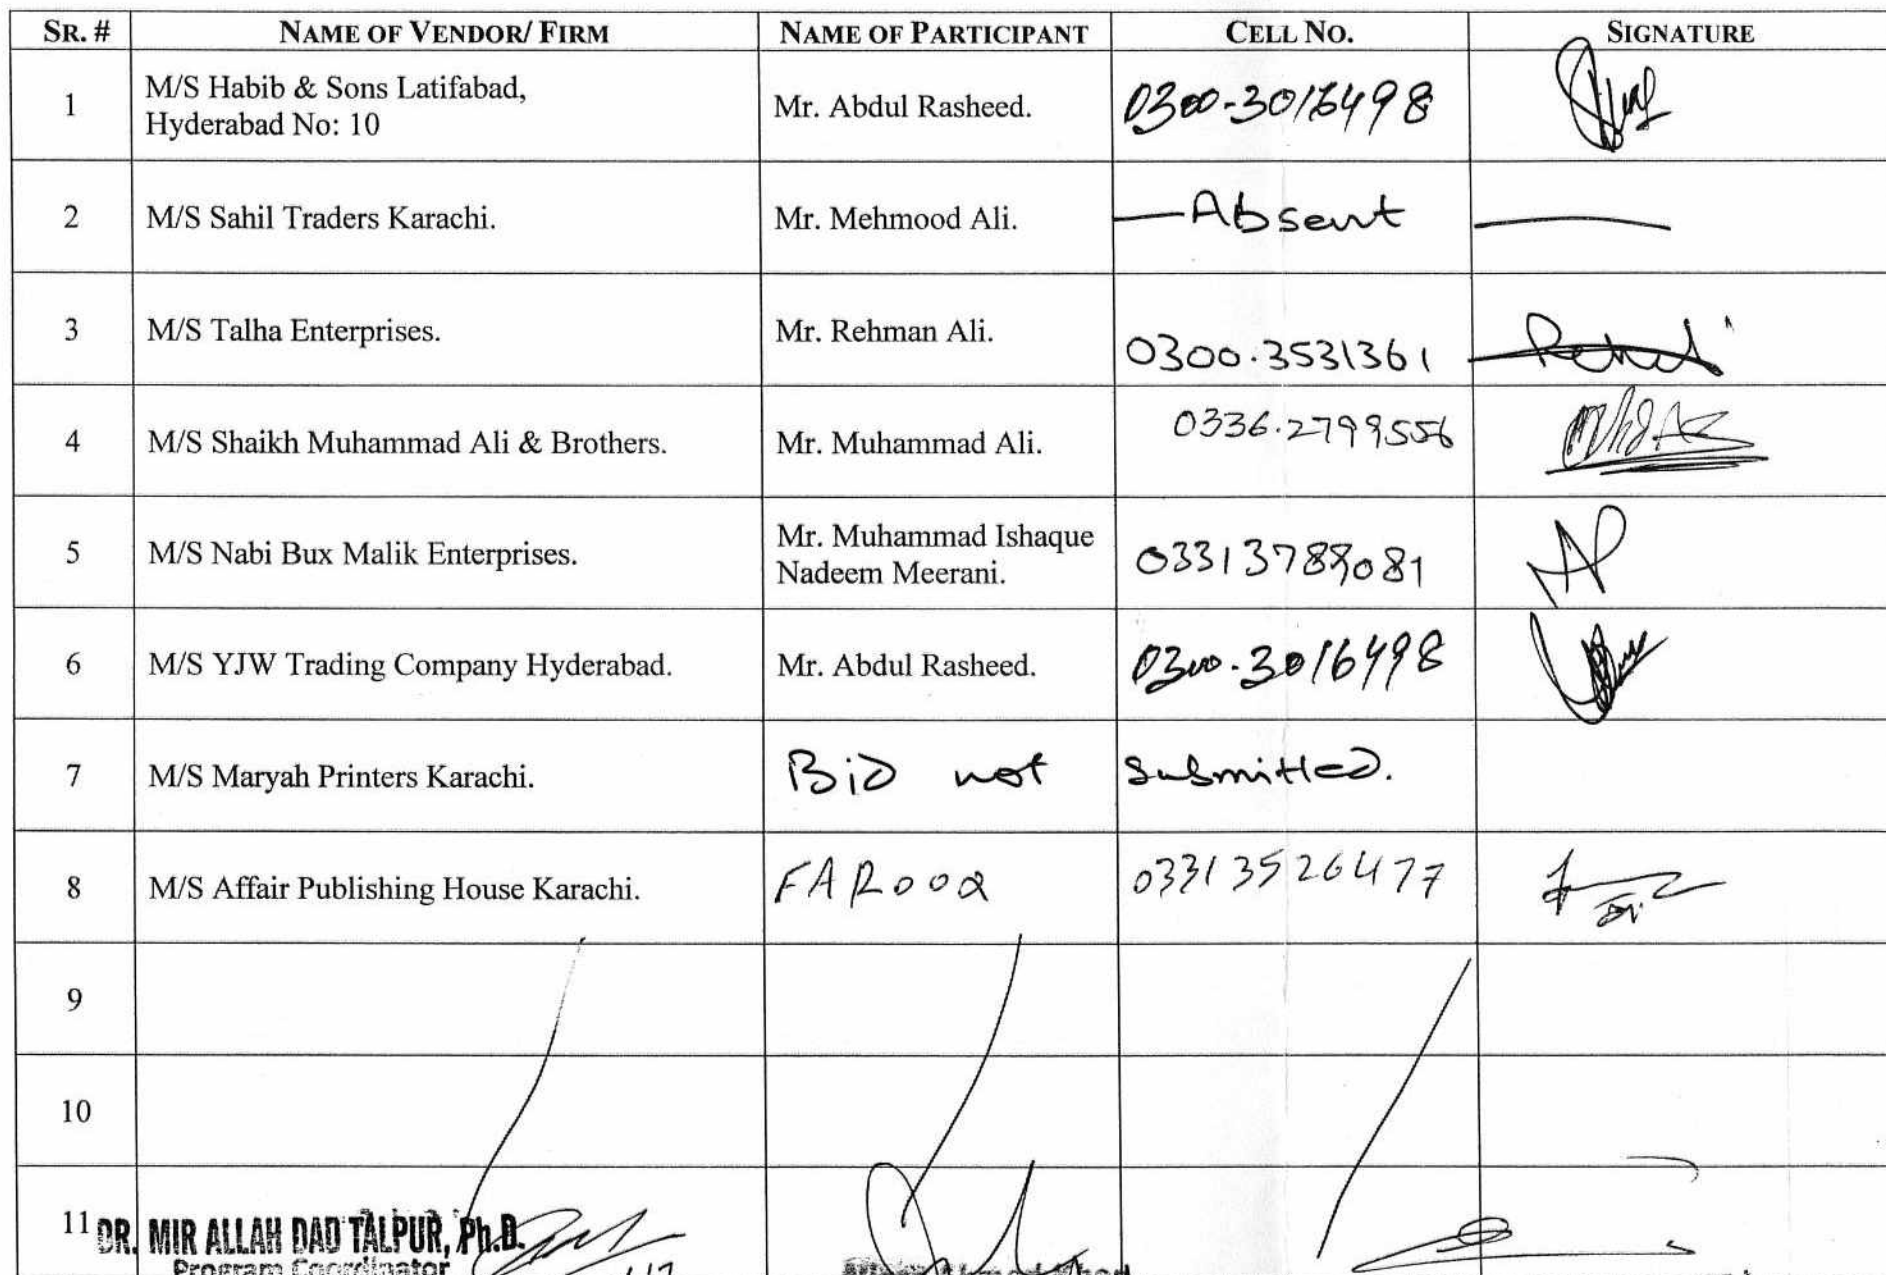 SR. # NAME OF VENDOR/ FIRM NAME OF PARTICIPANT CELL NO. SIGNATURE
1 M/S Habib & Sons Latifabad, Hyderabad No: 10 Mr. Abdul Rasheed. 0300-3016498
2 M/S Sahil Traders Karachi. Mr. Mehmood Ali. —Absent —
3 M/S Talha Enterprises. Mr. Rehman Ali. 0300.3531361
4 M/S Shaikh Muhammad Ali & Brothers. Mr. Muhammad Ali. 0336.2799556
5 M/S Nabi Bux Malik Enterprises. Mr. Muhammad Ishaque Nadeem Meerani. 03313789081
6 M/S YJW Trading Company Hyderabad. Mr. Abdul Rasheed. 0300-3016498
7 M/S Maryah Printers Karachi. Bid not submitted.
8 M/S Affair Publishing House Karachi. FAROOQ 03313526477
9
10
11
DR. MIR ALLAH DAD TALPUR, Ph.D.
Program Coordinator